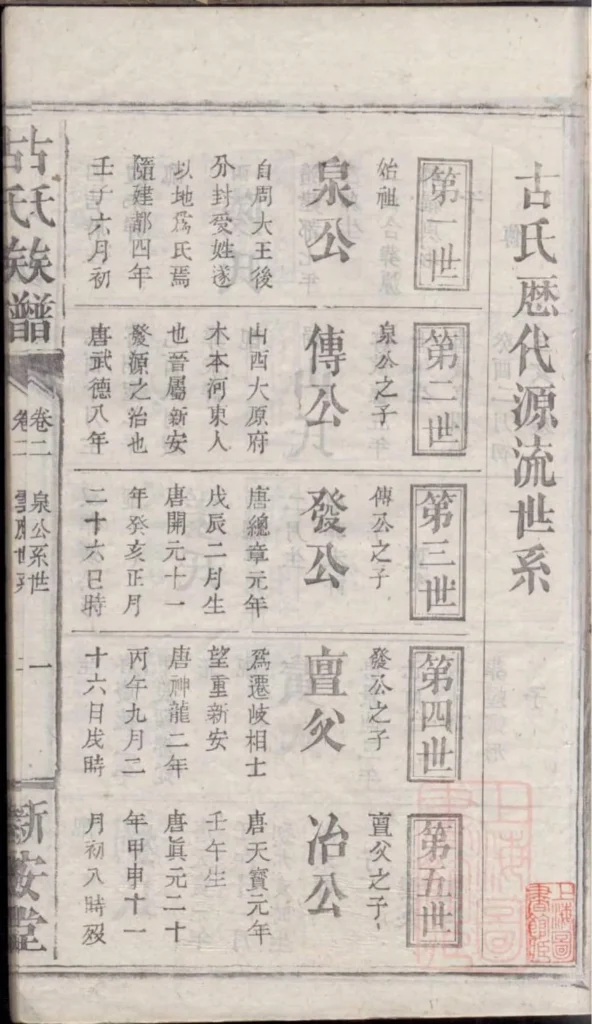 古氏歷代源流世系
第一世
始祖
泉公
自周大王後
分封受姓遂
以地爲氏焉
隨建都四年
壬子六月初
第二世
泉公之子
傳公
山西大原府
木本河東人
也晉屬新安
發源之治也
唐武德八年
第三世
傳公之子
發公
唐總章元年
戊辰二月生
唐開元十一
年癸亥正月
二十六日時
第四世
發公之子
亶父
爲遷岐相士
望重新安
唐神龍二年
丙午九月二
十六日戌時
第五世
亶父之子
冶公
唐天寶元年
壬午生
唐眞元二十
年甲申十一
月初八時歿
古氏族譜
卷二
泉公系世
一
新安堂
上海圖
書館藏